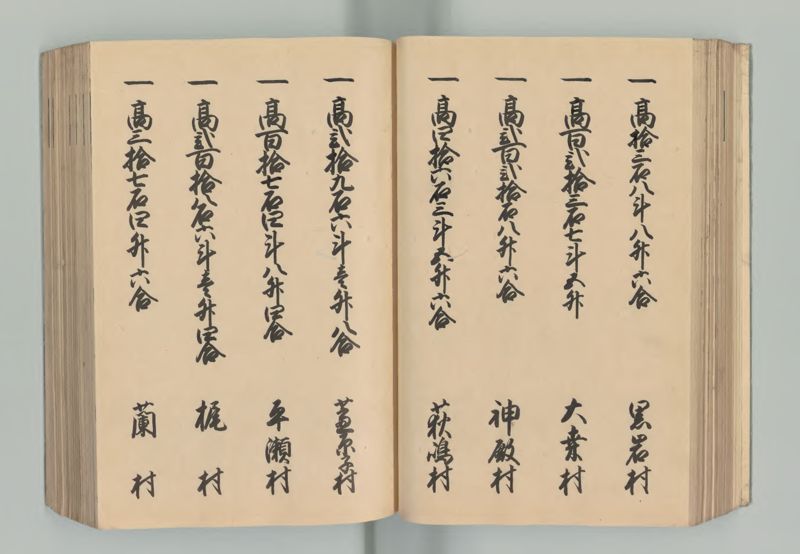 一 高拾三石八斗八升六合 黒岩村
一 高百弐拾三石七斗五升 大桑村
一 高弐百弐拾石八升六合 神殿村
一 高四拾六石三斗五升六合 荻嶋村
一 高弐拾九石六斗壱升八合 村
一 高百拾七石四斗八升四合 平瀬村
一 高弐百拾八石六斗壱升四合 梶村
一 高三拾七石四升六合 蘭村